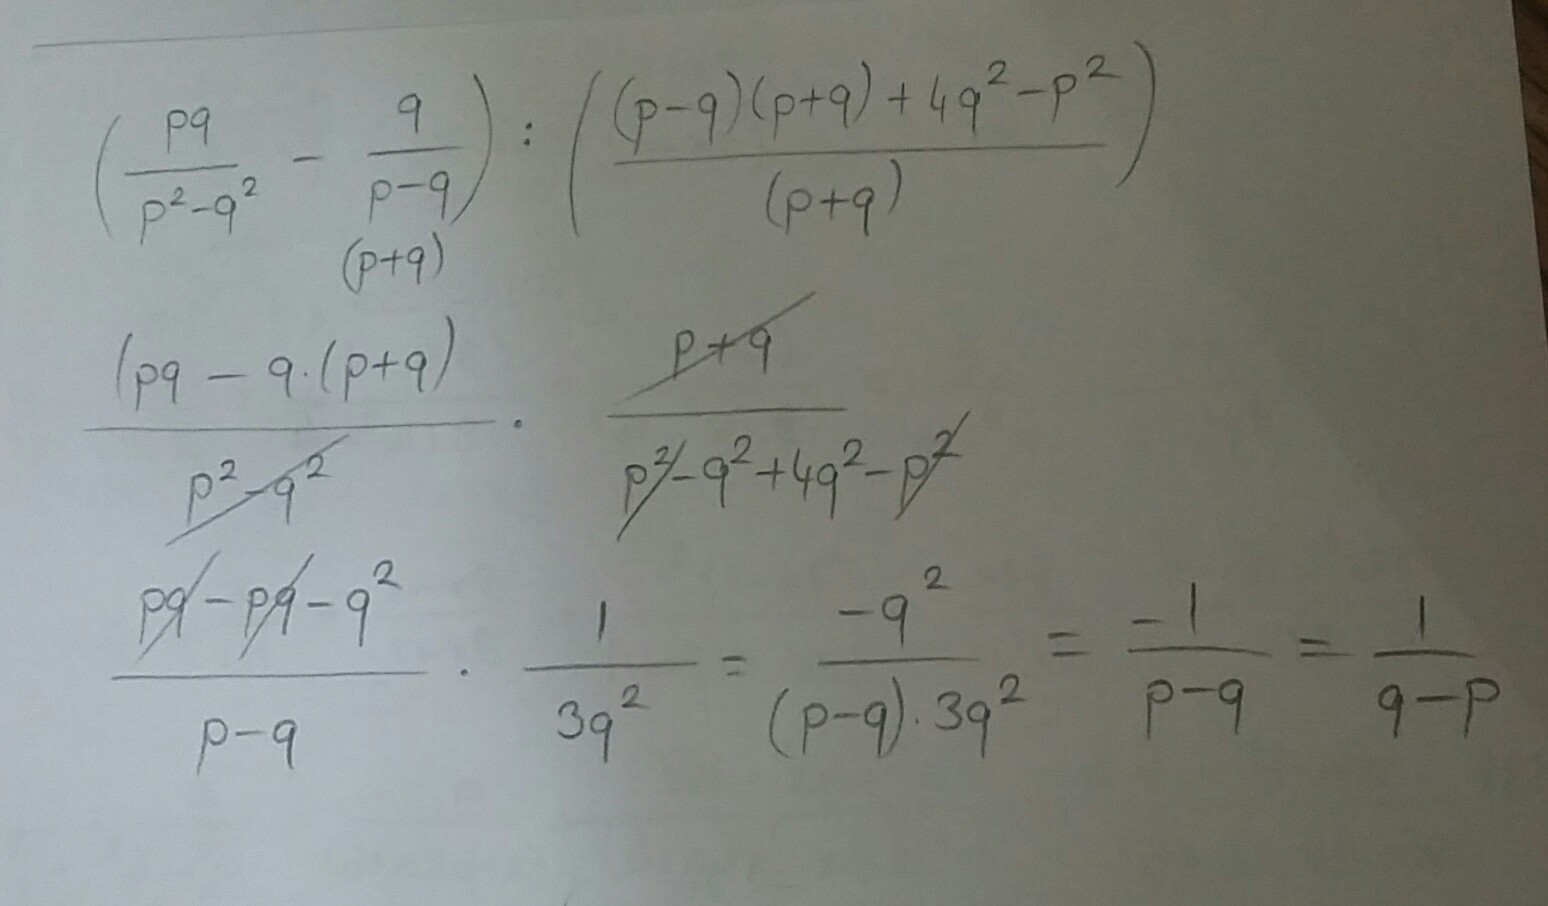 (pq/(p²-q²) - q/(p-q)) : (((p-q)(p+q)+4q²-p²)/(p+q))
(p+q)
(pq - q·(p+q)/(p²-q²) · (p+q)/(p²-q²+4q²-p²)
(pq-pq-q²)/(p-q) · 1/(3q²) = -q²/((p-q)·3q²) = -1/(p-q) = 1/(q-p)